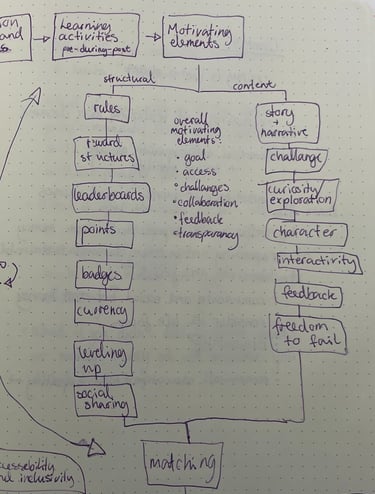 on
and
Learning
activities
pre-during-post
Motivating
elements
structural
content
rules
reward
structures
leaderboards
points
badges
currency
leveling
up
social
sharing
overall
motivating
elements:
• goal
• access
• challanges
• collaboration
• feedback
• transparancy
story
+
narrative
challange
curiosity/
exploration
character
interactivity
feedback
freedom
to fail
matching
ccessebility
nd inclusivity